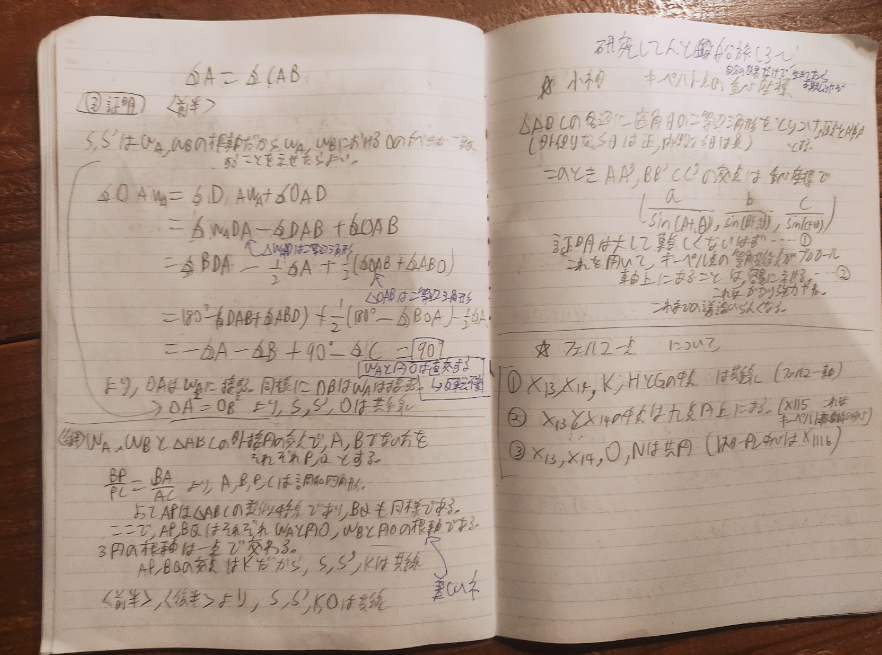 ∡A = ∡CAB
③証明 〈前半〉
S, S'はωA, ωBの根軸だから, ωA, ωBにおける Oの
ことを示せたらよい。
∡OAωA = ∡DAωA + ∡OAD
= ∡ωADA - ∡DAB + ∡OAB
は二等辺三角形
= ∡BDA - 1/2∡A + 1/2(∡OAB + ∡ABO)
△OABは二等辺三角形
= 180° - (∡DAB + ∡ABD) + 1/2(180° - ∡BOA) - 1/2∡A
= -∡A - ∡B + 90° - ∡C = 90°
ωAと円Oは直交する
より, OAはωAに接する。同様に OBはωBに接する
→ OA² = OB² より, S, S', Oは共線
〈後半〉ωA, ωBと△ABCの外接円の交点で, A, Bでない方を
それぞれP, Qとする。
BP/PC = BA/AC より, A, B, P, Cは調和四角形。
よってAPは△ABCの類似中線であり, BQも同様である。
ここで, AP, BQはそれぞれωAと円O, ωBと円Oの根軸である。
3円の根軸は一点で交わる。
AP, BQの交点はKだから, S, S', Kは共線
美しいネ
〈前半〉,〈後半〉より, S, S', K, Oは共線
研究してんと
☆ 小ネタ キーペルト点の重心座標
△ABCの各辺に底角θの二等辺三角形をとりつけ,
(外側ならθは正, 内側ならθは負) とする。
このとき AA', BB', CC'の交点は重心座標で
(a/sin(A+θ), b/sin(B+θ), c/sin(C+θ))
証明は大して難しくないはず……①
これを用いて, キーペルト点の等角共役点がブロカール
軸上にあることは, 容易に示せる。…②
これはかなり強力である。
これまでの議論いらんくなる。
☆ フェルマー点 について
① X₁₃, X₁₄, K, HとGの中点 は共線 (フェルマー軸)
② X₁₃とX₁₄の中点は九点円上にある。(X115 これは
③ X₁₃, X₁₄, O, Nは共円 (レスター円, 中心はX1116)